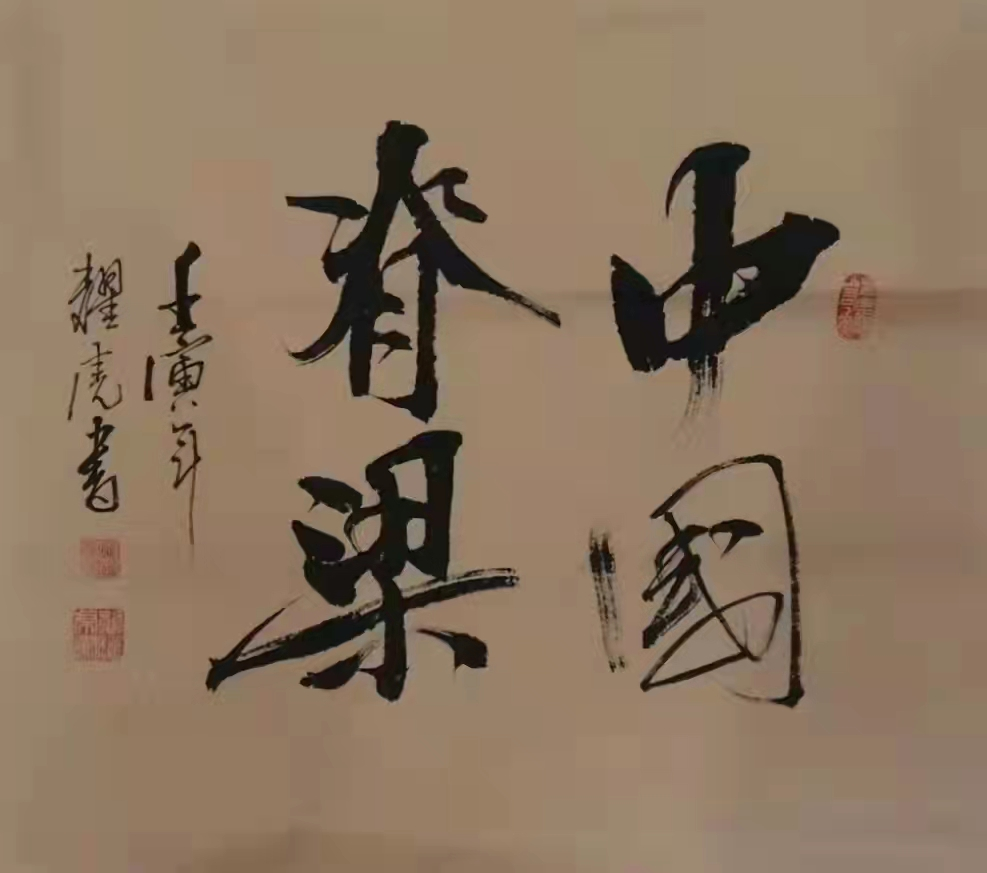 中國
脊梁
壬寅年
耀虎書